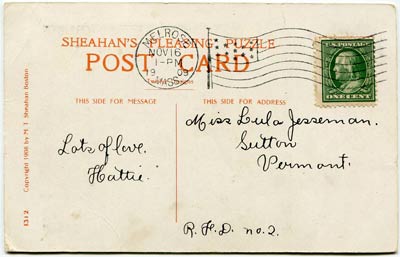 SHEAHAN'S PLEASING PUZZLE
POST CARD
MELROSE
NOV 16
1-PM
1909
MASS.
U.S. POSTAGE
ONE CENT
THIS SIDE FOR MESSAGE
THIS SIDE FOR ADDRESS
Lots of love.
Hattie.
Miss Lula Jesseman.
Sutton
Vermont.
R.F.D. no. 2.
Copyright 1908 by M. T. Sheahan Boston
1312